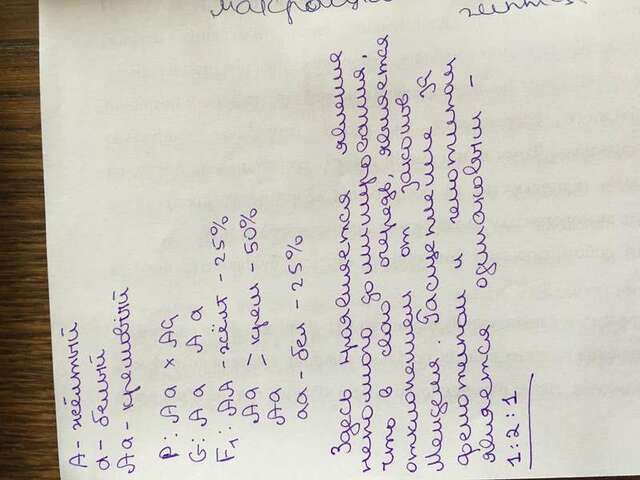 А - жёлтый
а - белый
Аа - кремовый
Р: Аа × Аа
G: А а   А а
F1: АА - жёлт - 25%
Аа > крем - 50%
Аа
аа - бел - 25%
Здесь проявляется явление
неполного доминирования,
что в свою очередь, является
отклонением от законов
Менделя. Расщепление за
фенотипом и генотипом
является одинаковым -
1:2:1